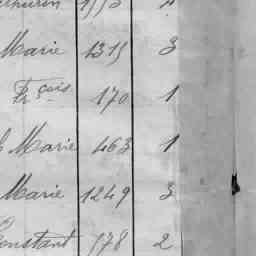 Marie 1315 3
Fr.çois 170 1
Marie 463 1
Marie 1249 3
Constant 978 2